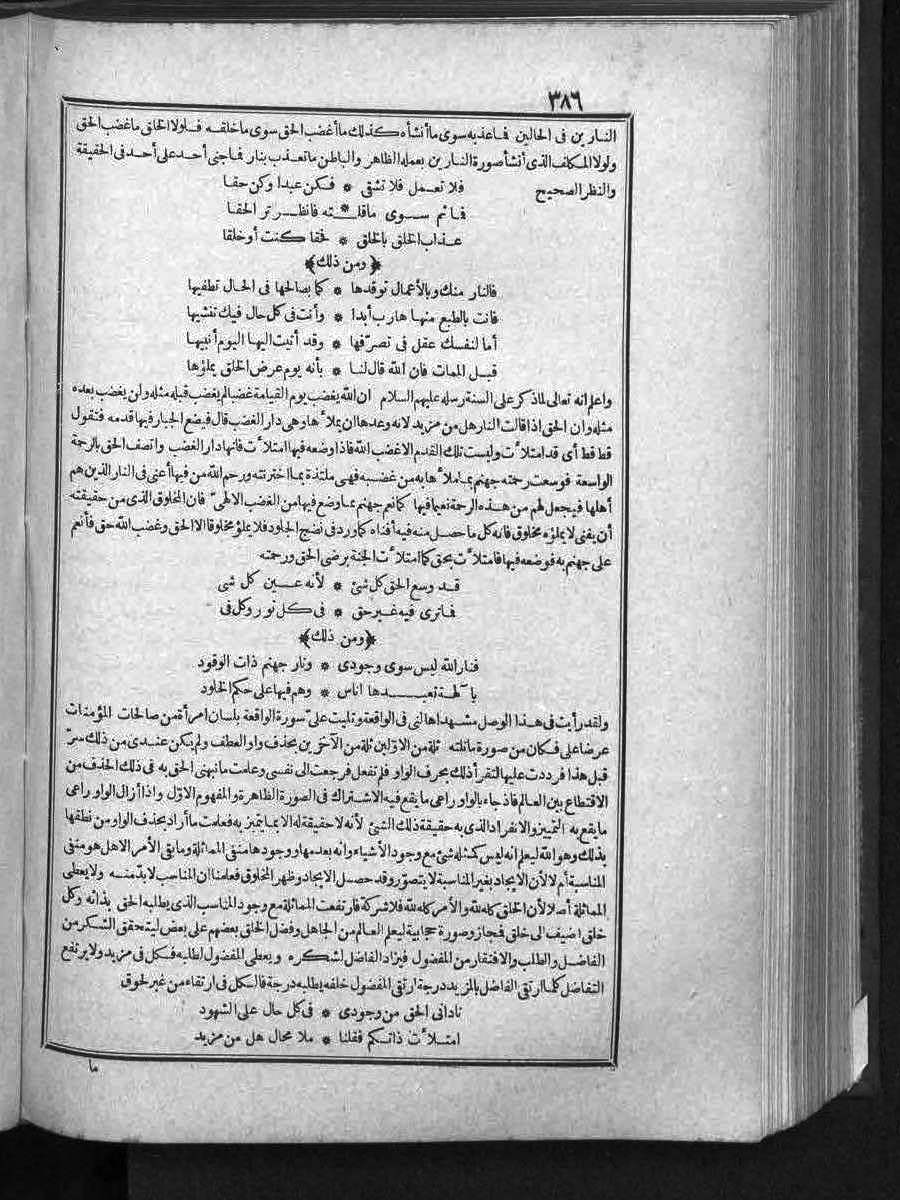 ٣٨٦
النارين فى الحالين فاعذبه سوى ما أنشأه كذلك ما أغضب الحق سوى ما خلقه فلولا الخلق ما غضب الحق
ولولا المكلف الذى أنشأ صورة النارين بعمله الظاهر والباطن ما تعذب بنار فاجنى أحد على أحد فى الحقيقة
والنظر الصحيح
فلا تعمل فلا تشقى * فكن عبدا وكن حقا
فما ثم سوى ما قلته فانظر تر الحقا
عذاب الخلق بالخلق * فحقا كنت أو خلقا
﴿ومن ذلك﴾
فالنار منك وبالأعمال توقدها * كما بصالحها فى الحال تطفيها
فانت بالطبع منها هارب أبدا * وأنت فى كل حال فيك تنشيها
أما لنفسك عقل فى تصرّفها * وقد أتيت اليها اليوم أنبيها
قبل الممات فان الله قال لنا * بأنه يوم عرض الخلق يملؤها
واعلم انه تعالى لما ذكر على السنة رسله عليهم السلام ان الله يغضب يوم القيامة غضبا لم يغضب قبله مثله ولن يغضب بعده
مثله وان الحق اذا قالت النار هل من مزيد لانه وعدها ان يملأها وهى دار الغضب قال فيضع الجبار فيها قدمه فتقول
قط قط أى قد امتلأت وليست تلك القدم الا غضب الله فاذا وضعه فيها امتلأت فانها دار الغضب واتصف الحق بالرحمة
الواسعة فوسعت رحمته جهنم بما ملأها به من غضبه فهى ملتذة بما اختزنته ورحم الله من فيها أعنى فى النار الذين هم
أهلها فيجعل لهم من هذه الرحمة نعيما فيها كما نعم جهنم بما وضع فيها من الغضب الالهىّ فان المخلوق الذى من حقيقته
أن يفنى لا يملؤه مخلوق فانه كل ما حصل منه فيه أفناه كما ورد فى نضج الجلود فلا يملؤ مخلوقا الا الحق وغضب الله حق فأنعم
على جهنم به فوضعه فيها فامتلأت بحق كما امتلأت الجنة برضى الحق ورحمته
قد وسع الحق كل شئ * لأنه عين كل شى
فما ترى فيه غير حق * فى كل نور وكل فى
﴿ومن ذلك﴾
فنار الله ليس سوى وجودى * ونار جهنم ذات الوقود
يا آلهة تعبدها اناس * وهم فيها على حكم الخلود
ولقد رأيت فى هذا الوصل مشهدا هالنى فى الواقعة وتليت علىّ سورة الواقعة بلسان امرأة من صالحات المؤمنات
عرضا على فكان من صورة ما تلته ثلة من الاوّلين ثلة من الآخرين بحذف واو العطف ولم يكن عندى من ذلك سرّ
قبل هذا فرددت عليها لتقرأ ذلك بحرف الواو فلم تفعل فرجعت الى نفسى وعلمت ما نبهنى الحق به فى ذلك الحذف من
الاقتطاع بين العالم فاذا جاء بالواو راعى ما يقع فيه الاشتراك فى الصورة الظاهرة والمفهوم الاوّل واذا أزال الواو راعى
ما يقع به التمييز والانفراد الذى به حقيقة ذلك الشئ لأنه لا حقيقة له الا بما يتميز به فعلمت ما أراد بحذف الواو من نطقها
بذلك وهو الله ليعلم انه ليس كمثله شئ مع وجود الأشياء وانه بعدمها ووجودها منفى المماثلة وما بقى الأمر الا هل هو منفى
المناسبة أم لا لأن الايجاد بغير المناسبة لا يتصوّر وقد حصل الايجاد وظهر المخلوق فعلمنا ان المناسب لا بدّ منه ولا يعطى
المماثلة أصلا لأن الخلق كله لله والأمر كله لله فلا شركة فارتفعت المماثلة مع وجود المناسب الذى يطلبه الحق بذاته وكل
خلق اضيف الى خلق فمجاز وصورة حجابية ليعلم العالم من الجاهل وفضل الخلق بعضهم على بعض ليتحقق الشكر من
الفاضل والطلب والافتقار من المفضول فيزاد الفاضل لشكره ويعطى المفضول لطلبه فكل فى مزيد ولا يرتفع
التفاضل كلما ارتقى الفاضل بالمزيد درجة ارتقى المفضول خلفه يطلبه درجة فالكل فى ارتقاء من غير لحوق
نادانى الحق من وجودى * فى كل حال على الشهود
امتلأت ذاتكم فقلنا * ملا محال هل من مزيد
ما